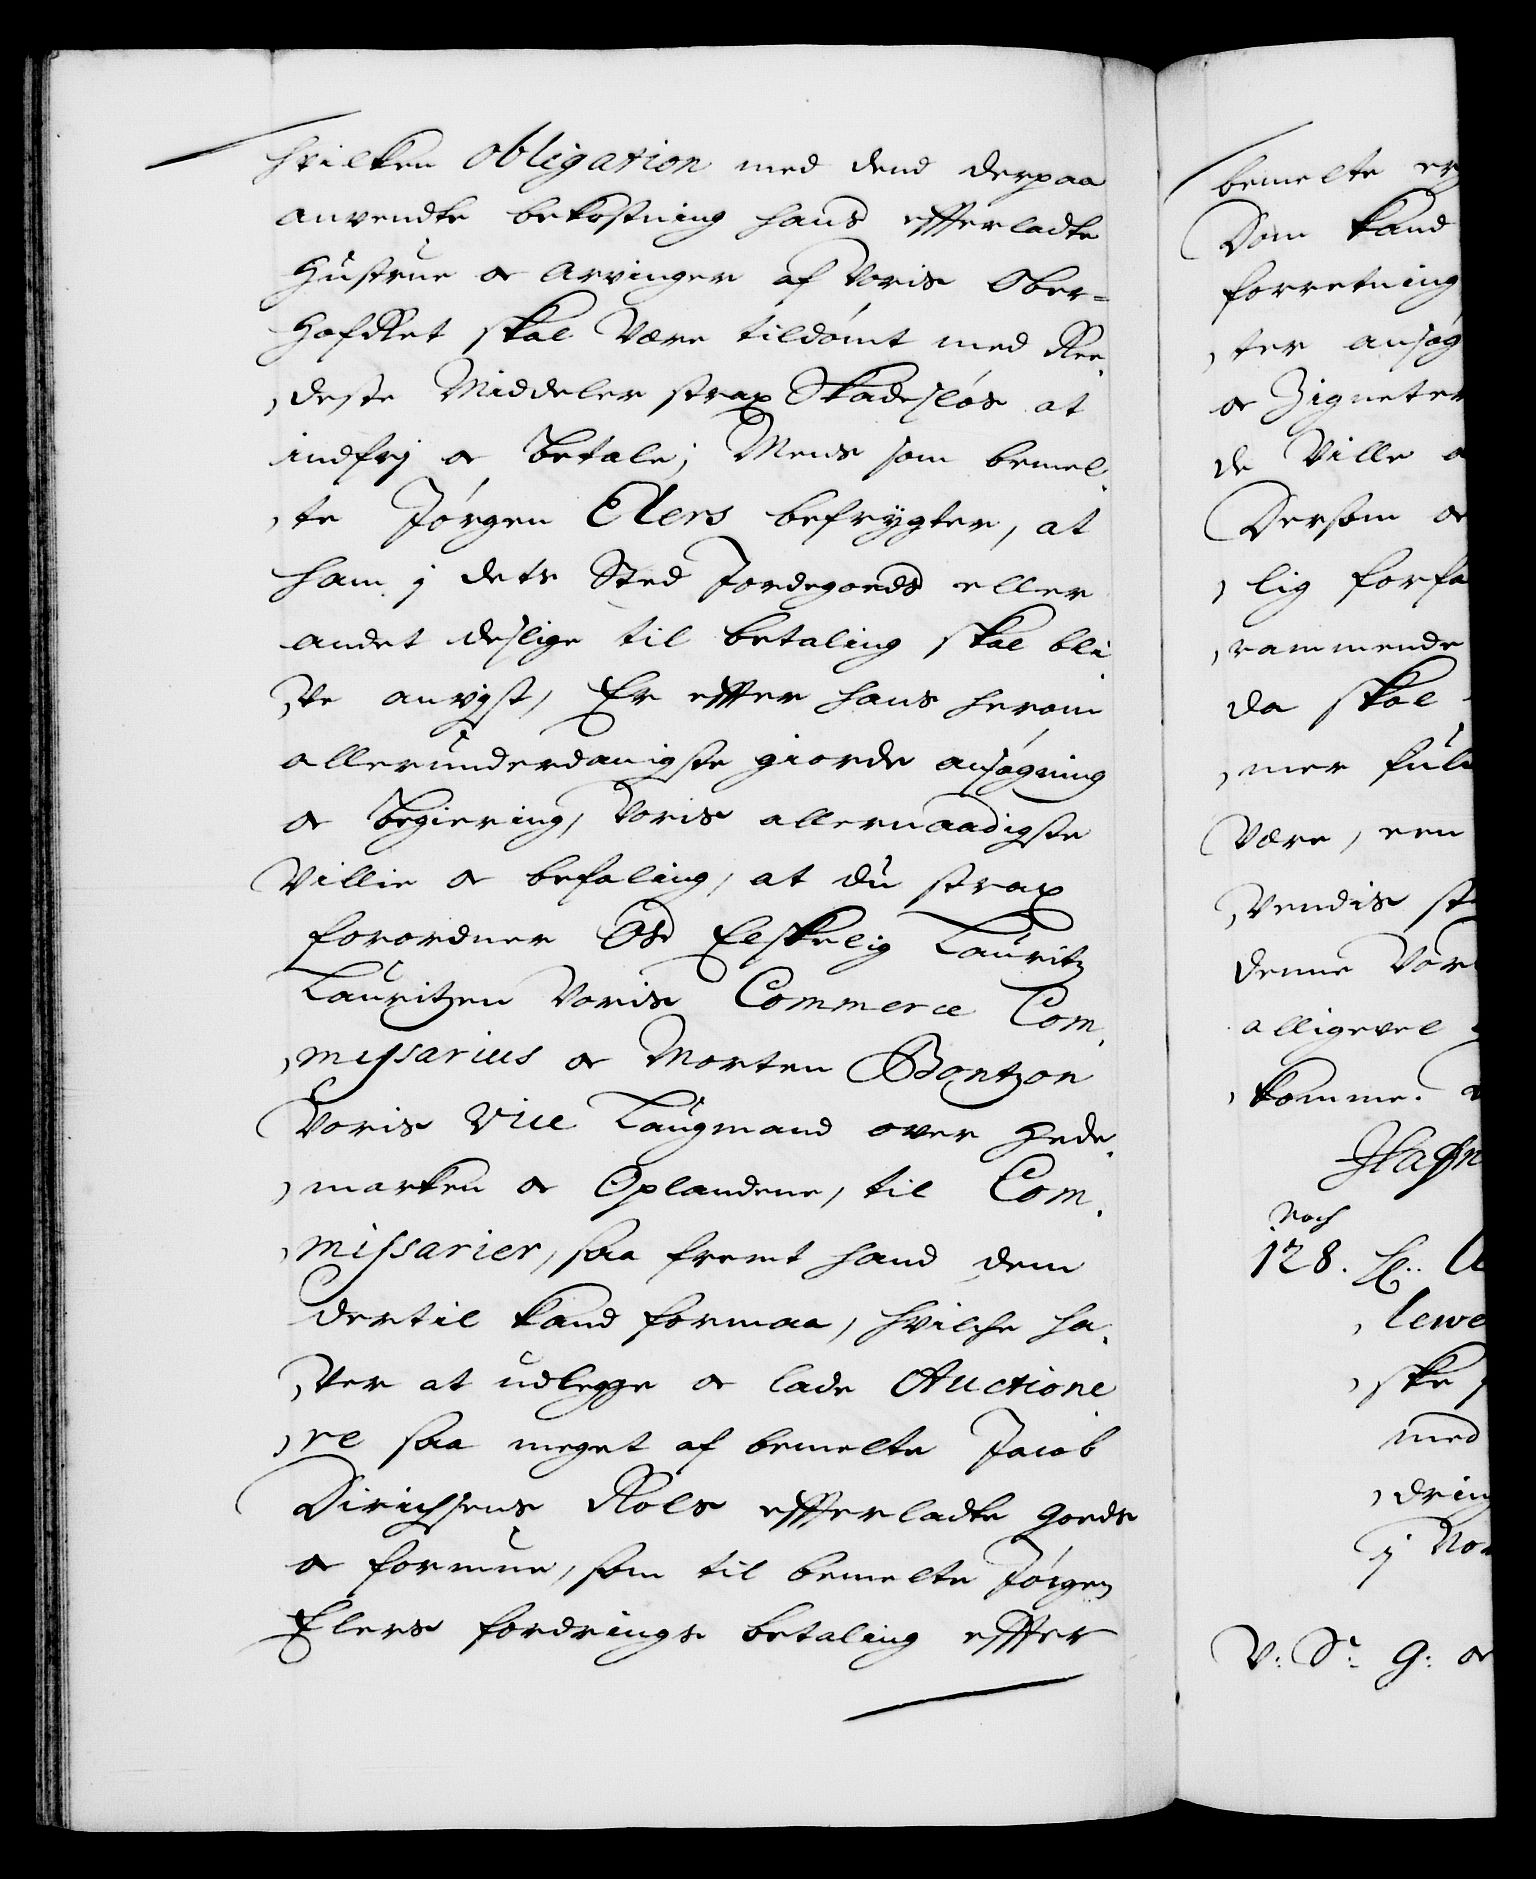 hvilken obligation med dend derpaa
anvendte bekostning hans efterladte
Hustrue oc Arvinger af Voris Ober-
HofRet skal være tildømt med Ree,
,deste Middeler strax Skadesløs at
indfrj oc betale; Mens som bemel,
,te Jørgen Elers befrygter, at
ham j dets Sted Jordegoeds eller
andet deslige til betaling skal bli
,ve anvjst, Er efter hans herom
allerunderdanigste giorde ansøgning
oc begiering, Voris allernaadigste
Villie oc befaling, at du strax
forordner Os Elskelig Lauritz
Lauritzen Voris Commerce Com,
,missarius oc Morten Bontzon
Voris Vice Laugmand over Hede,
,marken oc Oplandene, til Com,
,missarier, saa fremt hand dem
dertil kand formaa, hvilche ha,
,ver at udlegge oc lade Auctione
,re saa meget af bemelte Jacob
Dirichsens Roels efterladte Goeds
oc formue, som til bemelte Jørgen
Elers fordrings betaling efter
bemelte er
Dom kand
forretning
,ter ansøg
oc Zigneter
de Ville
Dersom oc
,lig forfa
,rammende
da skal
,mer ful
være, een
,vendis
denne Vor
alligevel
,komme.
Haffn
Noch
128.
,lewe
,ske
med
,dring
j Nor
V: Sr. G: oc